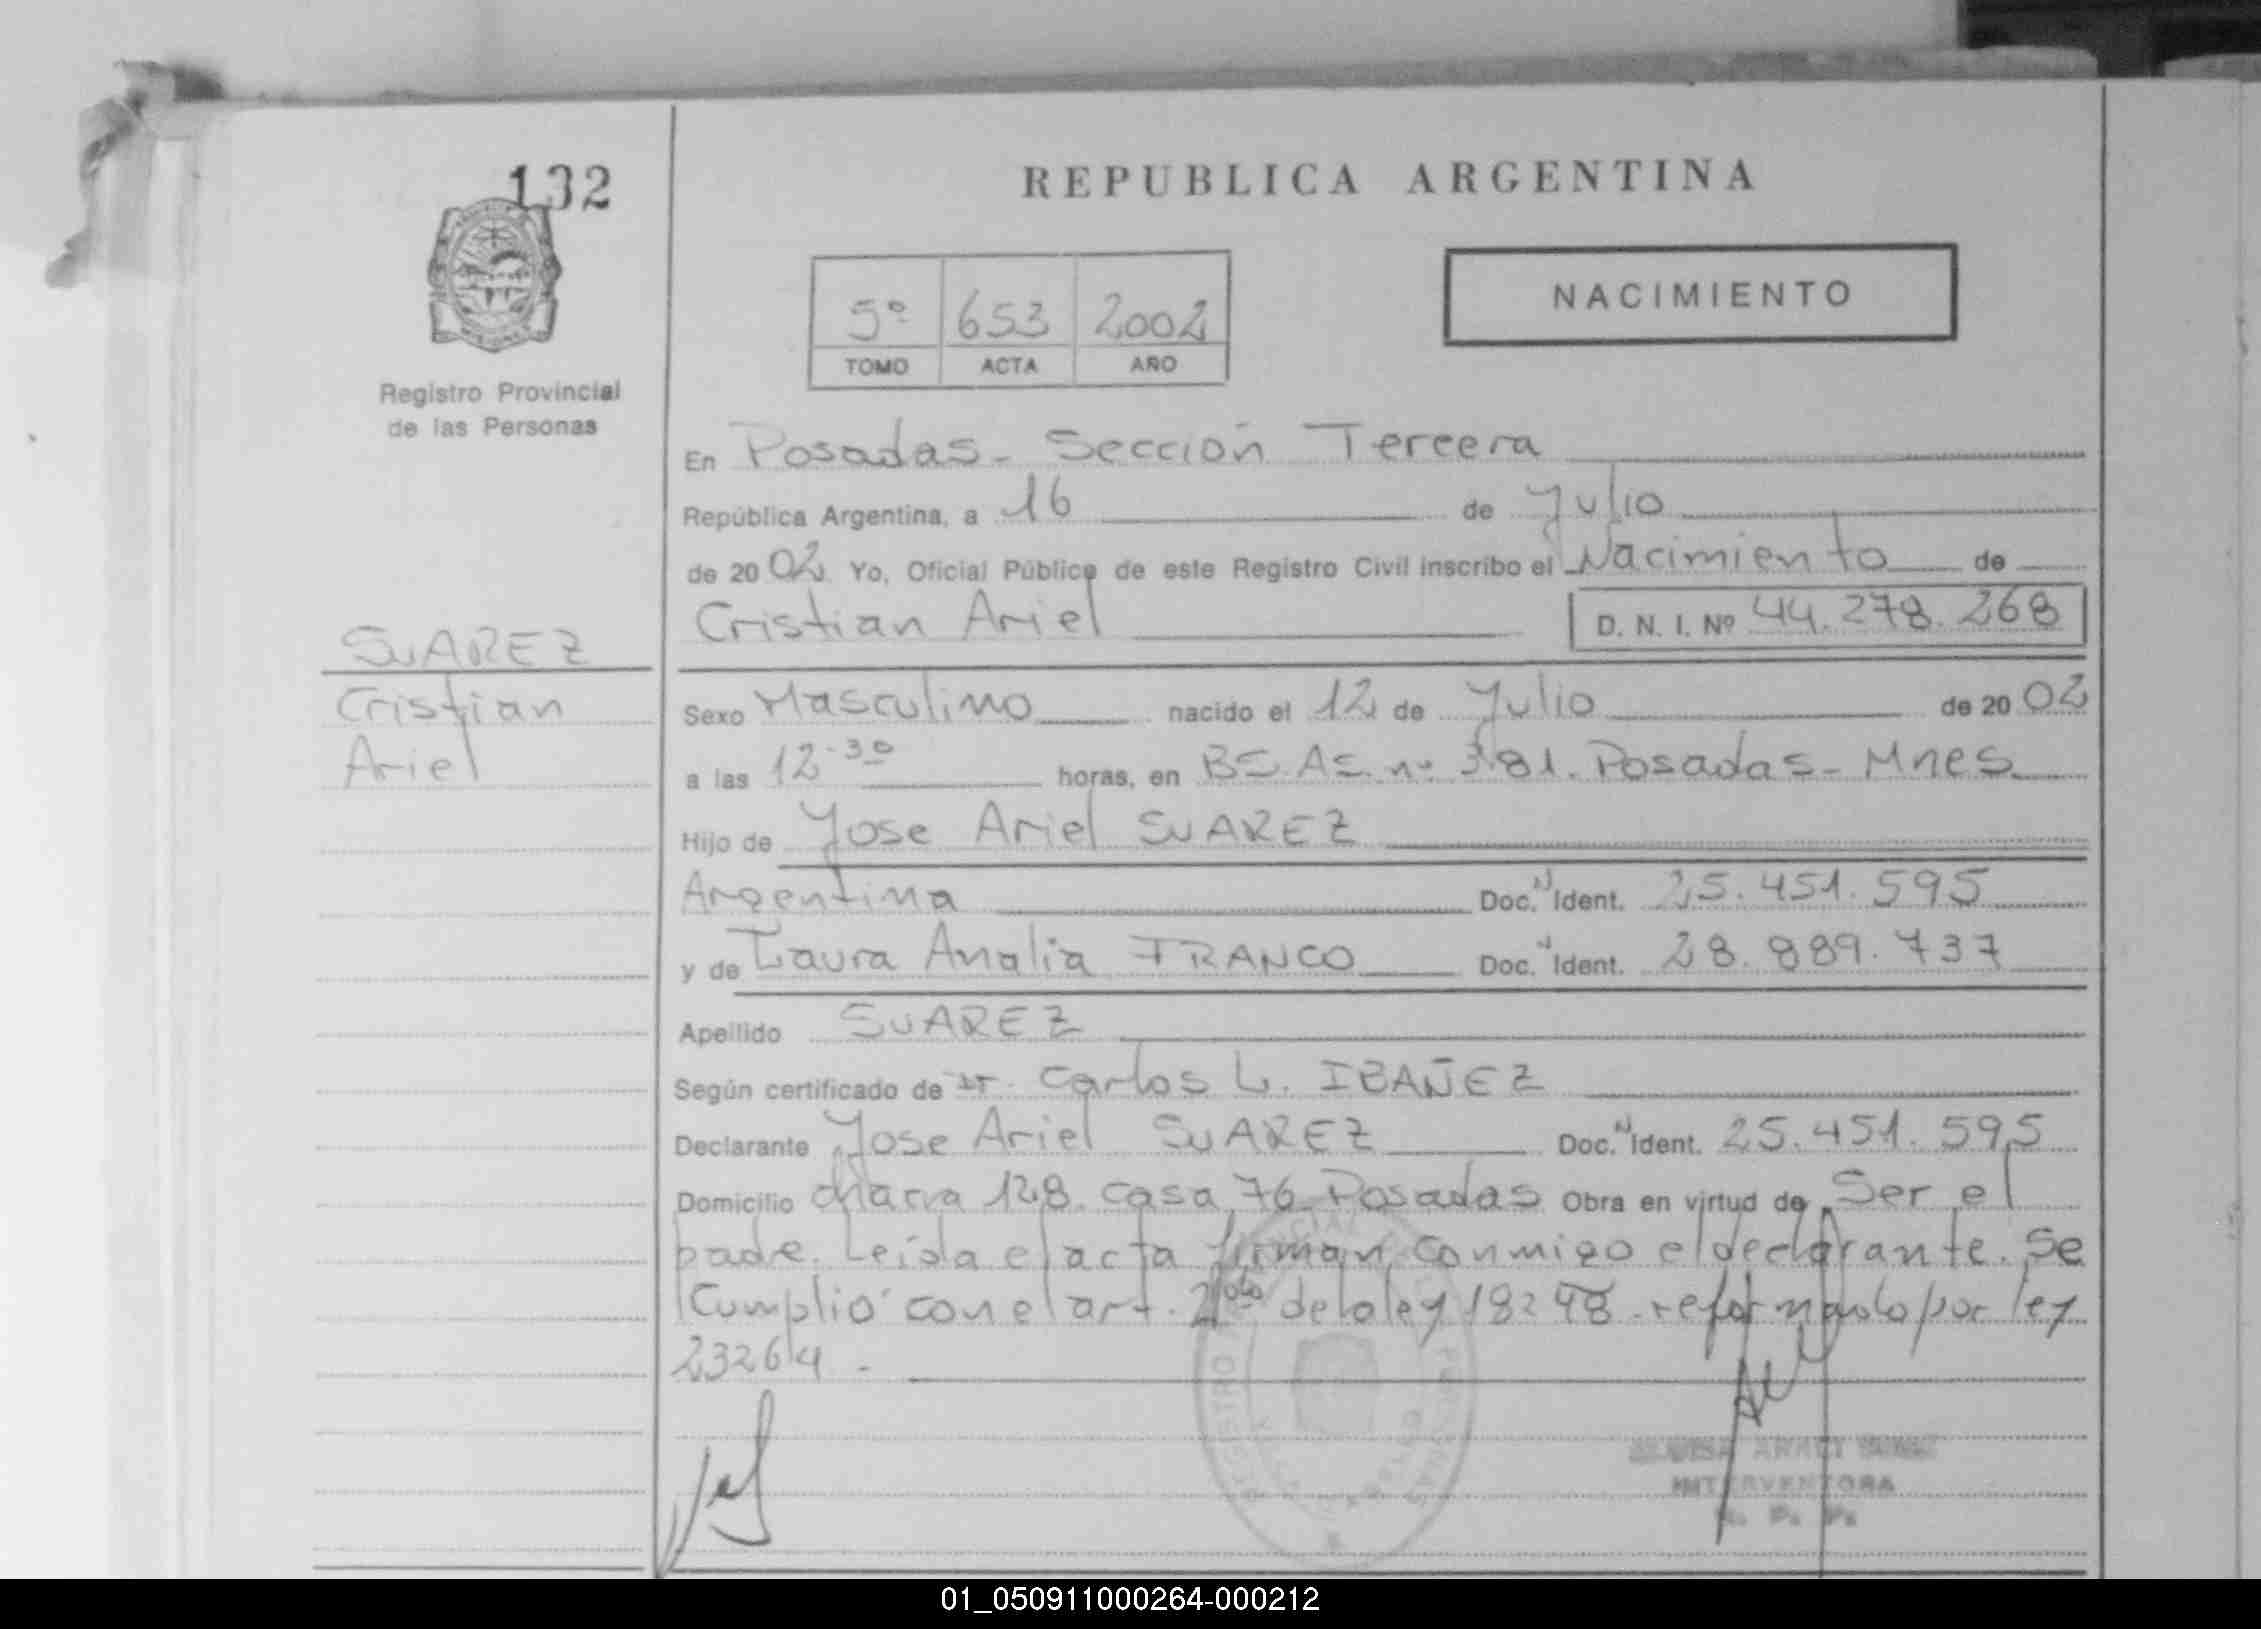 132
REPUBLICA ARGENTINA
NACIMIENTO
5º 653 2002
TOMO ACTA AÑO
Registro Provincial
de las Personas
En Posadas - Sección Tercera
República Argentina, a 16 de Julio
de 2002 Yo, Oficial Público de este Registro Civil inscribo el Nacimiento de
Cristian Ariel D. N. I. Nº 44.278.268
SUAREZ
Cristian
Ariel
Sexo Masculino nacido el 12 de Julio de 2002
a las 12-30 horas, en BS.AS. nº 381. Posadas - Mnes
Hijo de Jose Ariel SUAREZ
Argentina Doc. N Ident. 25.451.595
y de Laura Analia FRANCO Doc. N Ident. 28.889.737
Apellido SUAREZ
Según certificado de Dr. Carlos L. IBAÑEZ
Declarante Jose Ariel SUAREZ Doc. N Ident. 25.451.595
Domicilio chacra 128. casa 76 Posadas Obra en virtud de Ser el
padre. Leída el acta firman conmigo el declarante. Se
Cumplio con el art. de la ley 18248 - reformado por ley
23264 -
REGISTRO PROVINCIAL PERSONAS
INTERVENTORA
01_050911000264-000212